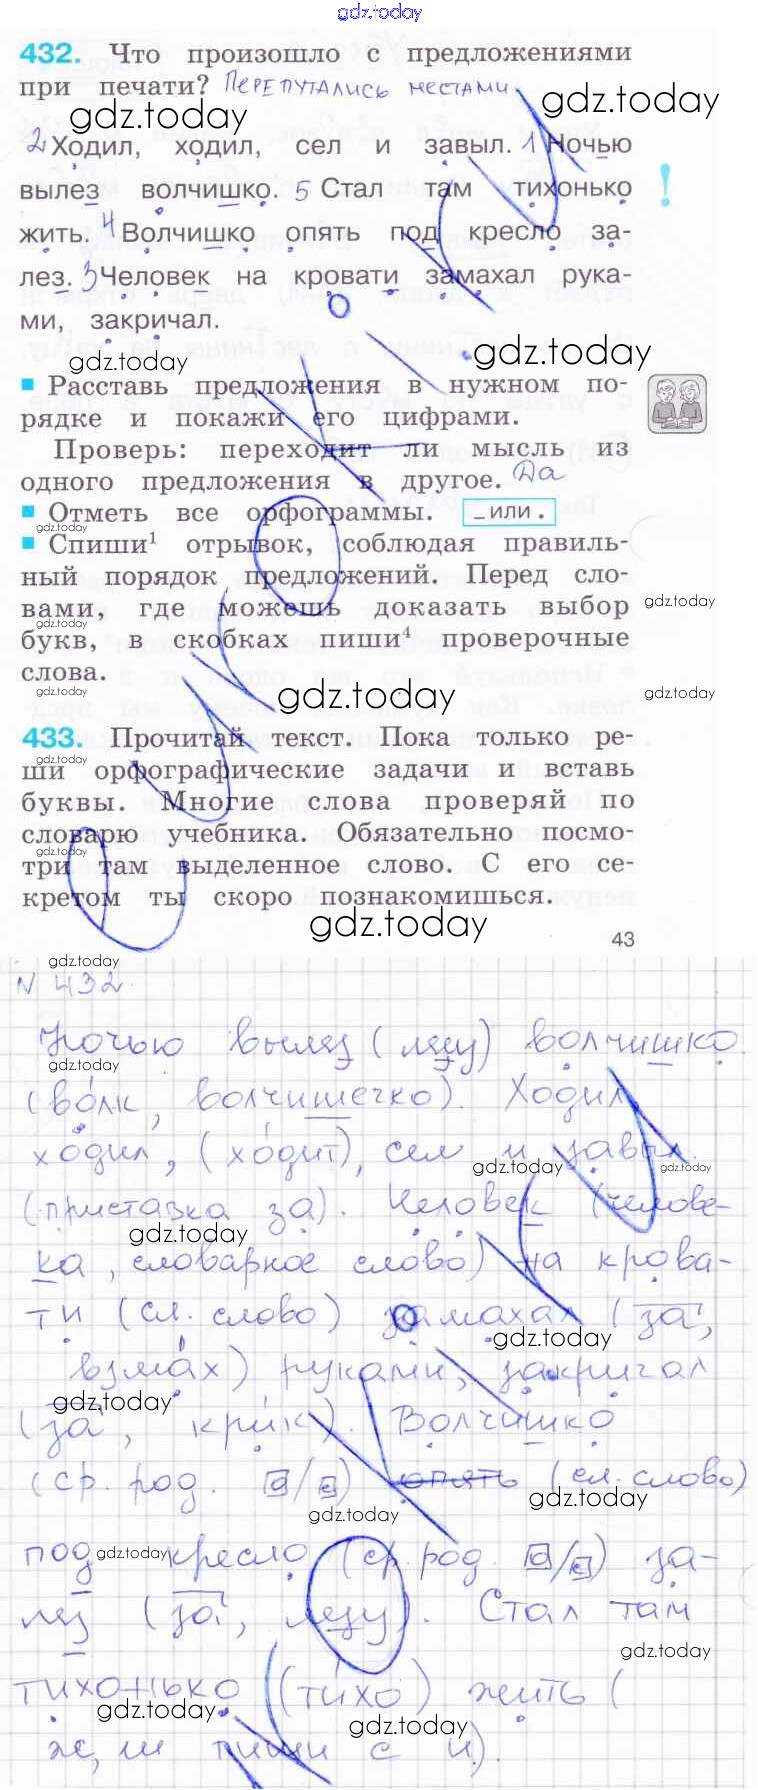 gdz.today
432. Что произошло с предложениями
при печати? Перепутались местами
gdz.today
gdz.today
2 Ходил, ходил, сел и завыл. 1 Ночью
вылез волчишко. 5 Стал там тихонько !
жить. 4 Волчишко опять под кресло за-
лез. 3 Человек на кровати замахал рука-
ми, закричал.
gdz.today
gdz.today
Расставь предложения в нужном по-
рядке и покажи его цифрами.
Проверь: переходит ли мысль из
одного предложения в другое. Да
Отметь все орфограммы. _ или .
gdz.today
Спиши¹ отрывок, соблюдая правиль-
ный порядок предложений. Перед сло-
вами, где можешь доказать выбор
gdz.today
gdz.today
букв, в скобках пиши⁴ проверочные
слова.
gdz.today
gdz.today
gdz.today
433. Прочитай текст. Пока только ре-
gdz.today
ши орфографические задачи и вставь
буквы. Многие слова проверяй по
словарю учебника. Обязательно посмо-
gdz.today
три там выделенное слово. С его се-
кретом ты скоро познакомишься.
gdz.today
43
gdz.today
N 432.
Ночью вылез (лезу) волчишко
gdz.today
(волк, волчишечко). Ходил,
ходил, (ходит), сел и завыл.
gdz.today
gdz.today
(приставка за). Человек (челове-
gdz.today
ка, словарное слово) на крова-
ти (сл. слово) замахал (за,
gdz.today
взмах) руками, закричал
gdz.today
(за, крик). Волчишко
(ср. род. о/е) опять (сл. слово)
gdz.today
gdz.today
под кресло (ср. род. о/е) за-
gdz.today
лез (за, лезу). Стал там
gdz.today
тихонько (тихо) жить (
gdz.today
gdz.today
ж, ш пиши с и).
gdz.today